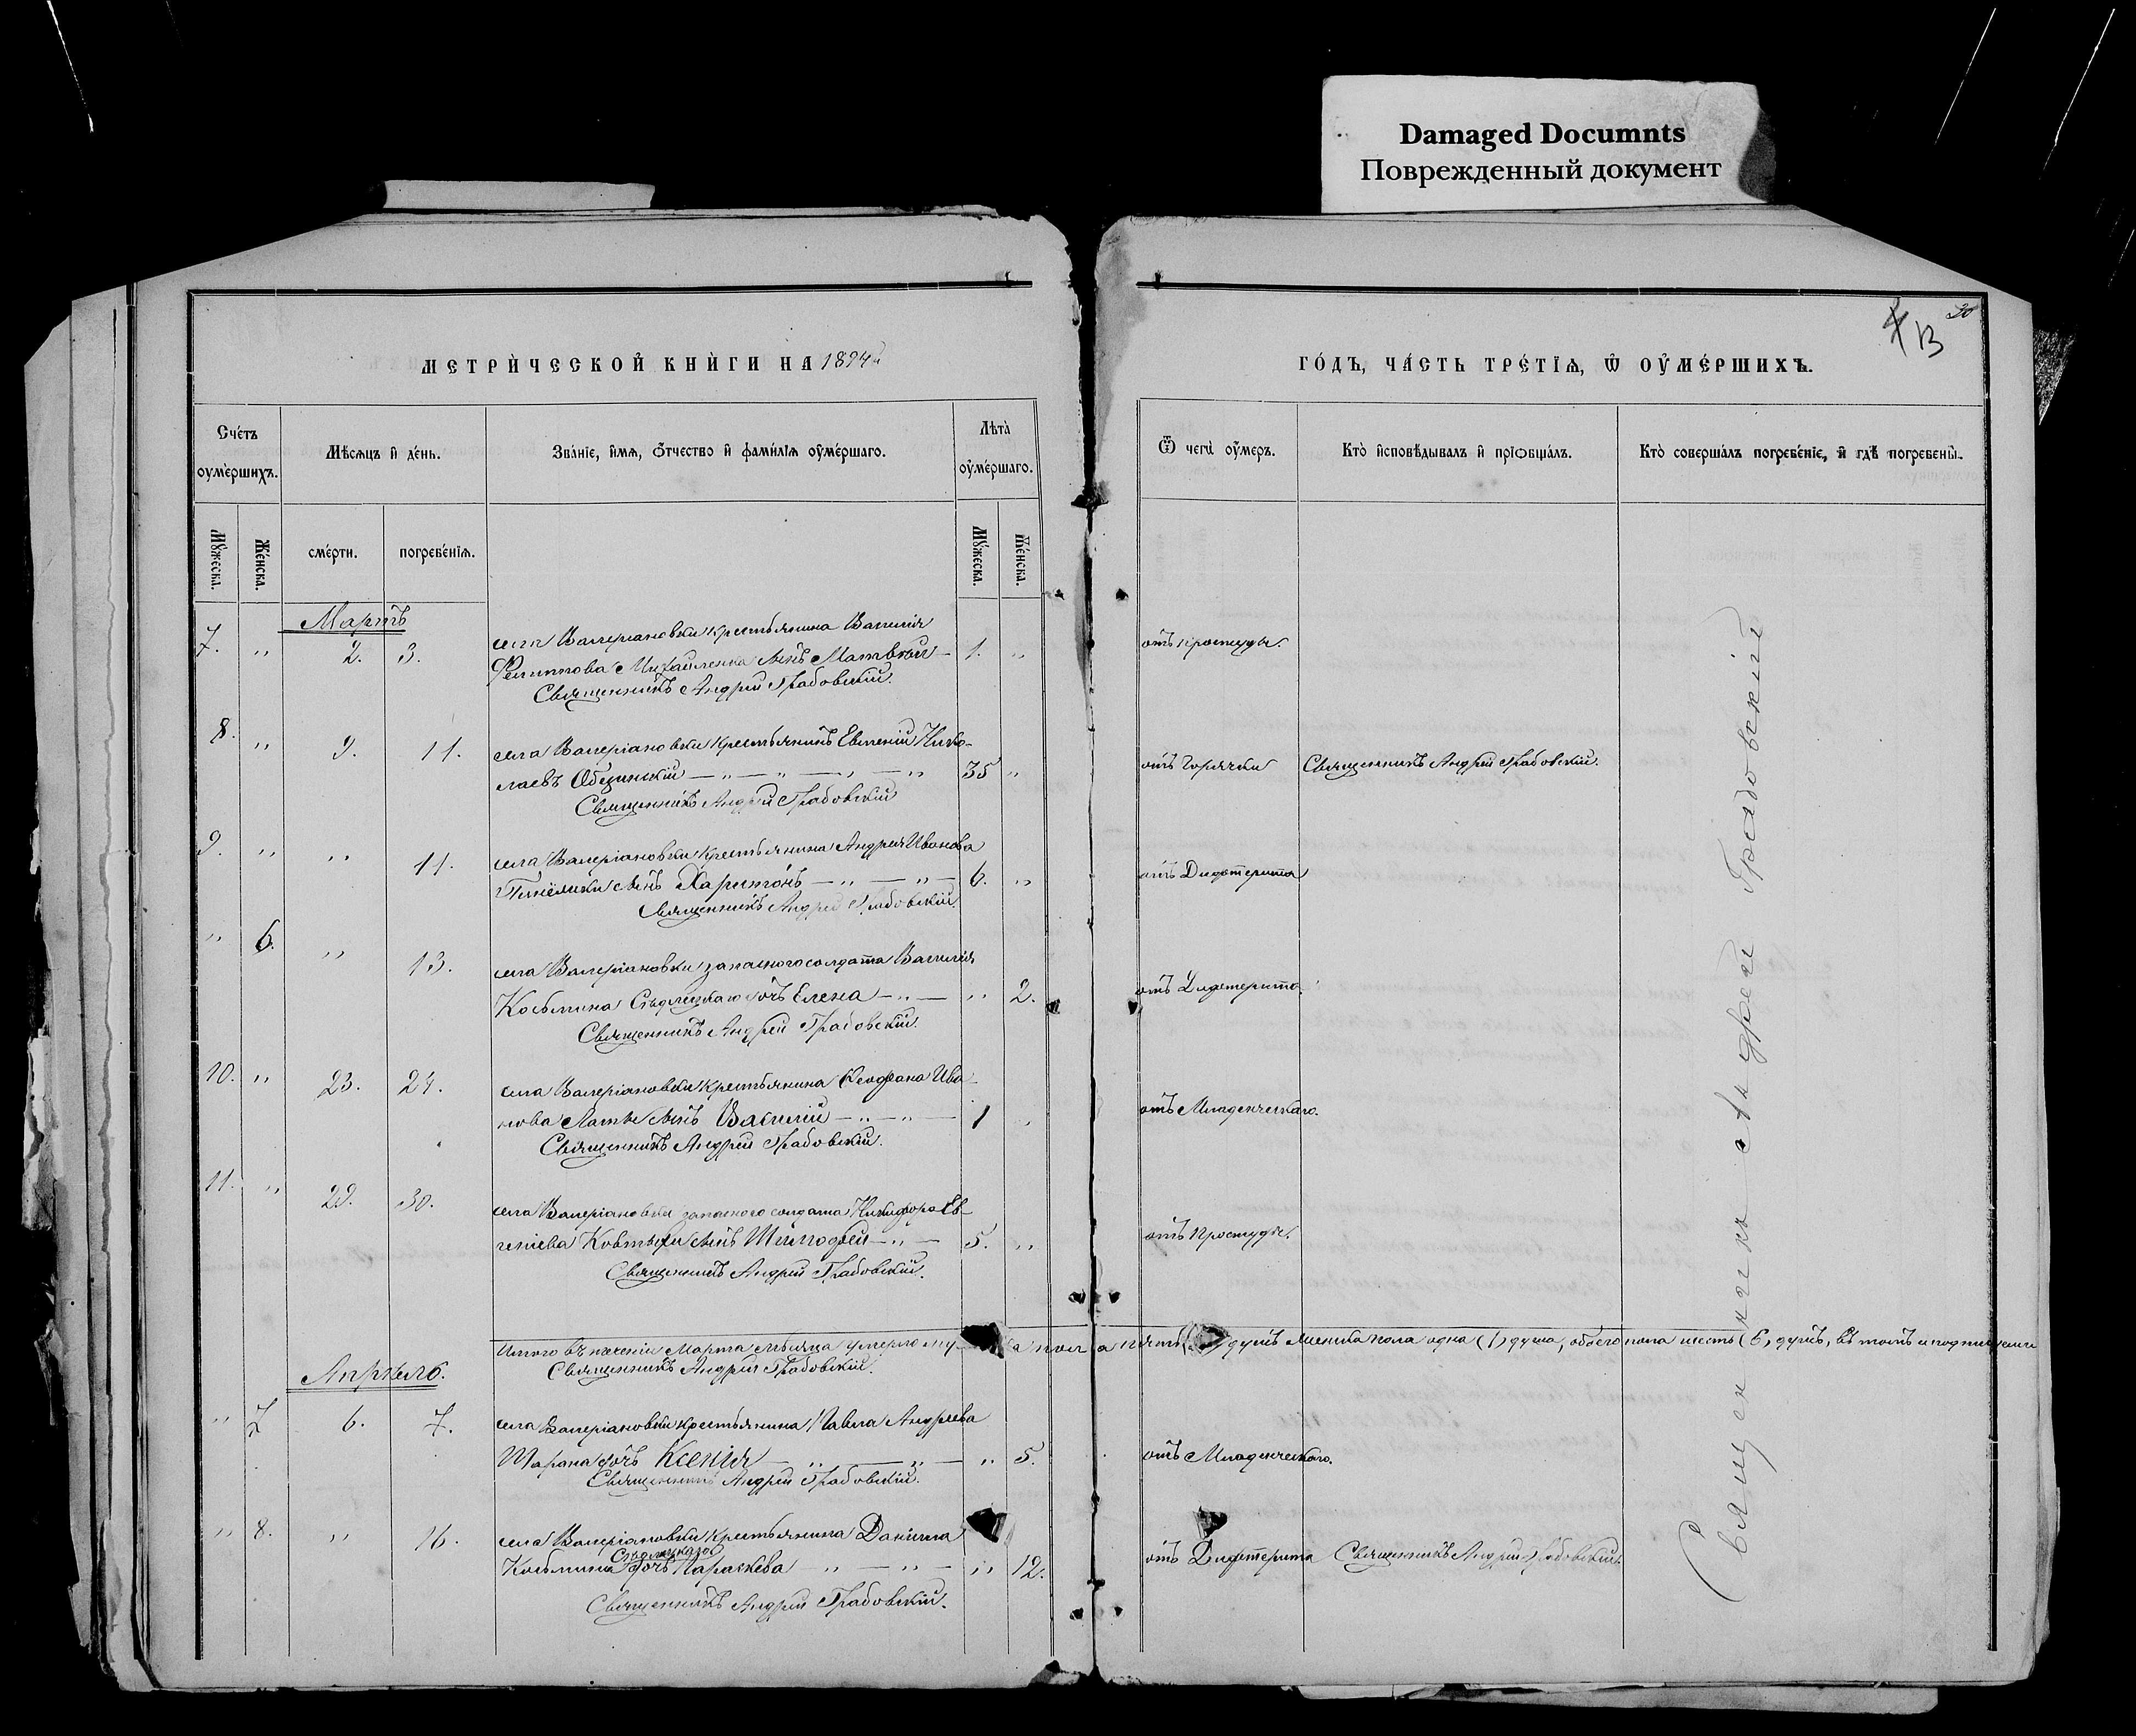 Damaged Documnts
Поврежденный документ
20
13
МЕТРИЧЕСКОЙ КНИГИ НА 1894й
ГОДЪ, ЧАСТЬ ТРЕТІѦ, Ѡ ОУМЕРШИХЪ.
Счетъ оумершихъ.
Мѣсѧцъ и день.
Званіе, имѧ, отчество и фамиліѧ оумершаго.
Лѣта оумершаго.
Ѿ чегѡ оумеръ.
Кто исповѣдывалъ и пріобщалъ.
Кто совершалъ погребеніе, и гдѣ погребены.
Мужеска.
Женска.
смерти.
погребеніѧ.
Мужеска.
Женска.
Мартъ
7. " 2. 3. села Валеріановки крестьянина Василія
Филиппова Михайленка сынъ Матвѣй — 1. " отъ простуды.
Священникъ Андрей Грабовскій.
8. " 9. 11. села Валеріановки крестьянинъ Евгеній Нико-
лаевъ — " — " — " — " 35 " отъ Горячки Священникъ Андрей Грабовскій.
Священникъ Андрей Грабовскій
9. " " 11. села Валеріановки крестьянина Андрея Иванова
сынъ Харитонъ — " — " — 6. " отъ Дифтерита
Священникъ Андрей Грабовскій.
" 6. " 13. села Валеріановки запасного солдата Василія
Косьмина Сѣдлецкаго дочь Елена — " — " 2. отъ Дифтерита.
Священникъ Андрей Грабовскій.
10. " 23. 24. села Валеріановки крестьянина Ива-
нова сынъ Василій — " — " — 1 " отъ Младенческаго.
Священникъ Андрей Грабовскій.
11. " 29. 30. села Валеріановки запасного солдата Никифора Ев-
геніева сынъ Тимофей — " — 5. " отъ Простуды.
Священникъ Андрей Грабовскій.
Итого въ теченіи Марта мѣсяца умерло пола пять душъ женска пола одна (1) душа, обоего пола шесть (6) душъ, въ томъ и подписуемся
Священникъ Андрей Грабовскій.
Апрѣль.
" 7 6. 7. села Валеріановки крестьянина Павла Андреева
Шарана дочь Ксенія — " — " — " 5. отъ Младенческаго.
Священникъ Андрей Грабовскій.
" 8. " 16. села Валеріановки крестьянина Даніила
Сѣдлецкаго
Косьмина дочь Параскева — " — " — " 12. отъ Дифтерита Священникъ Андрей Грабовскій.
Священникъ Андрей Грабовскій.
Священникъ Андрей Грабовскій